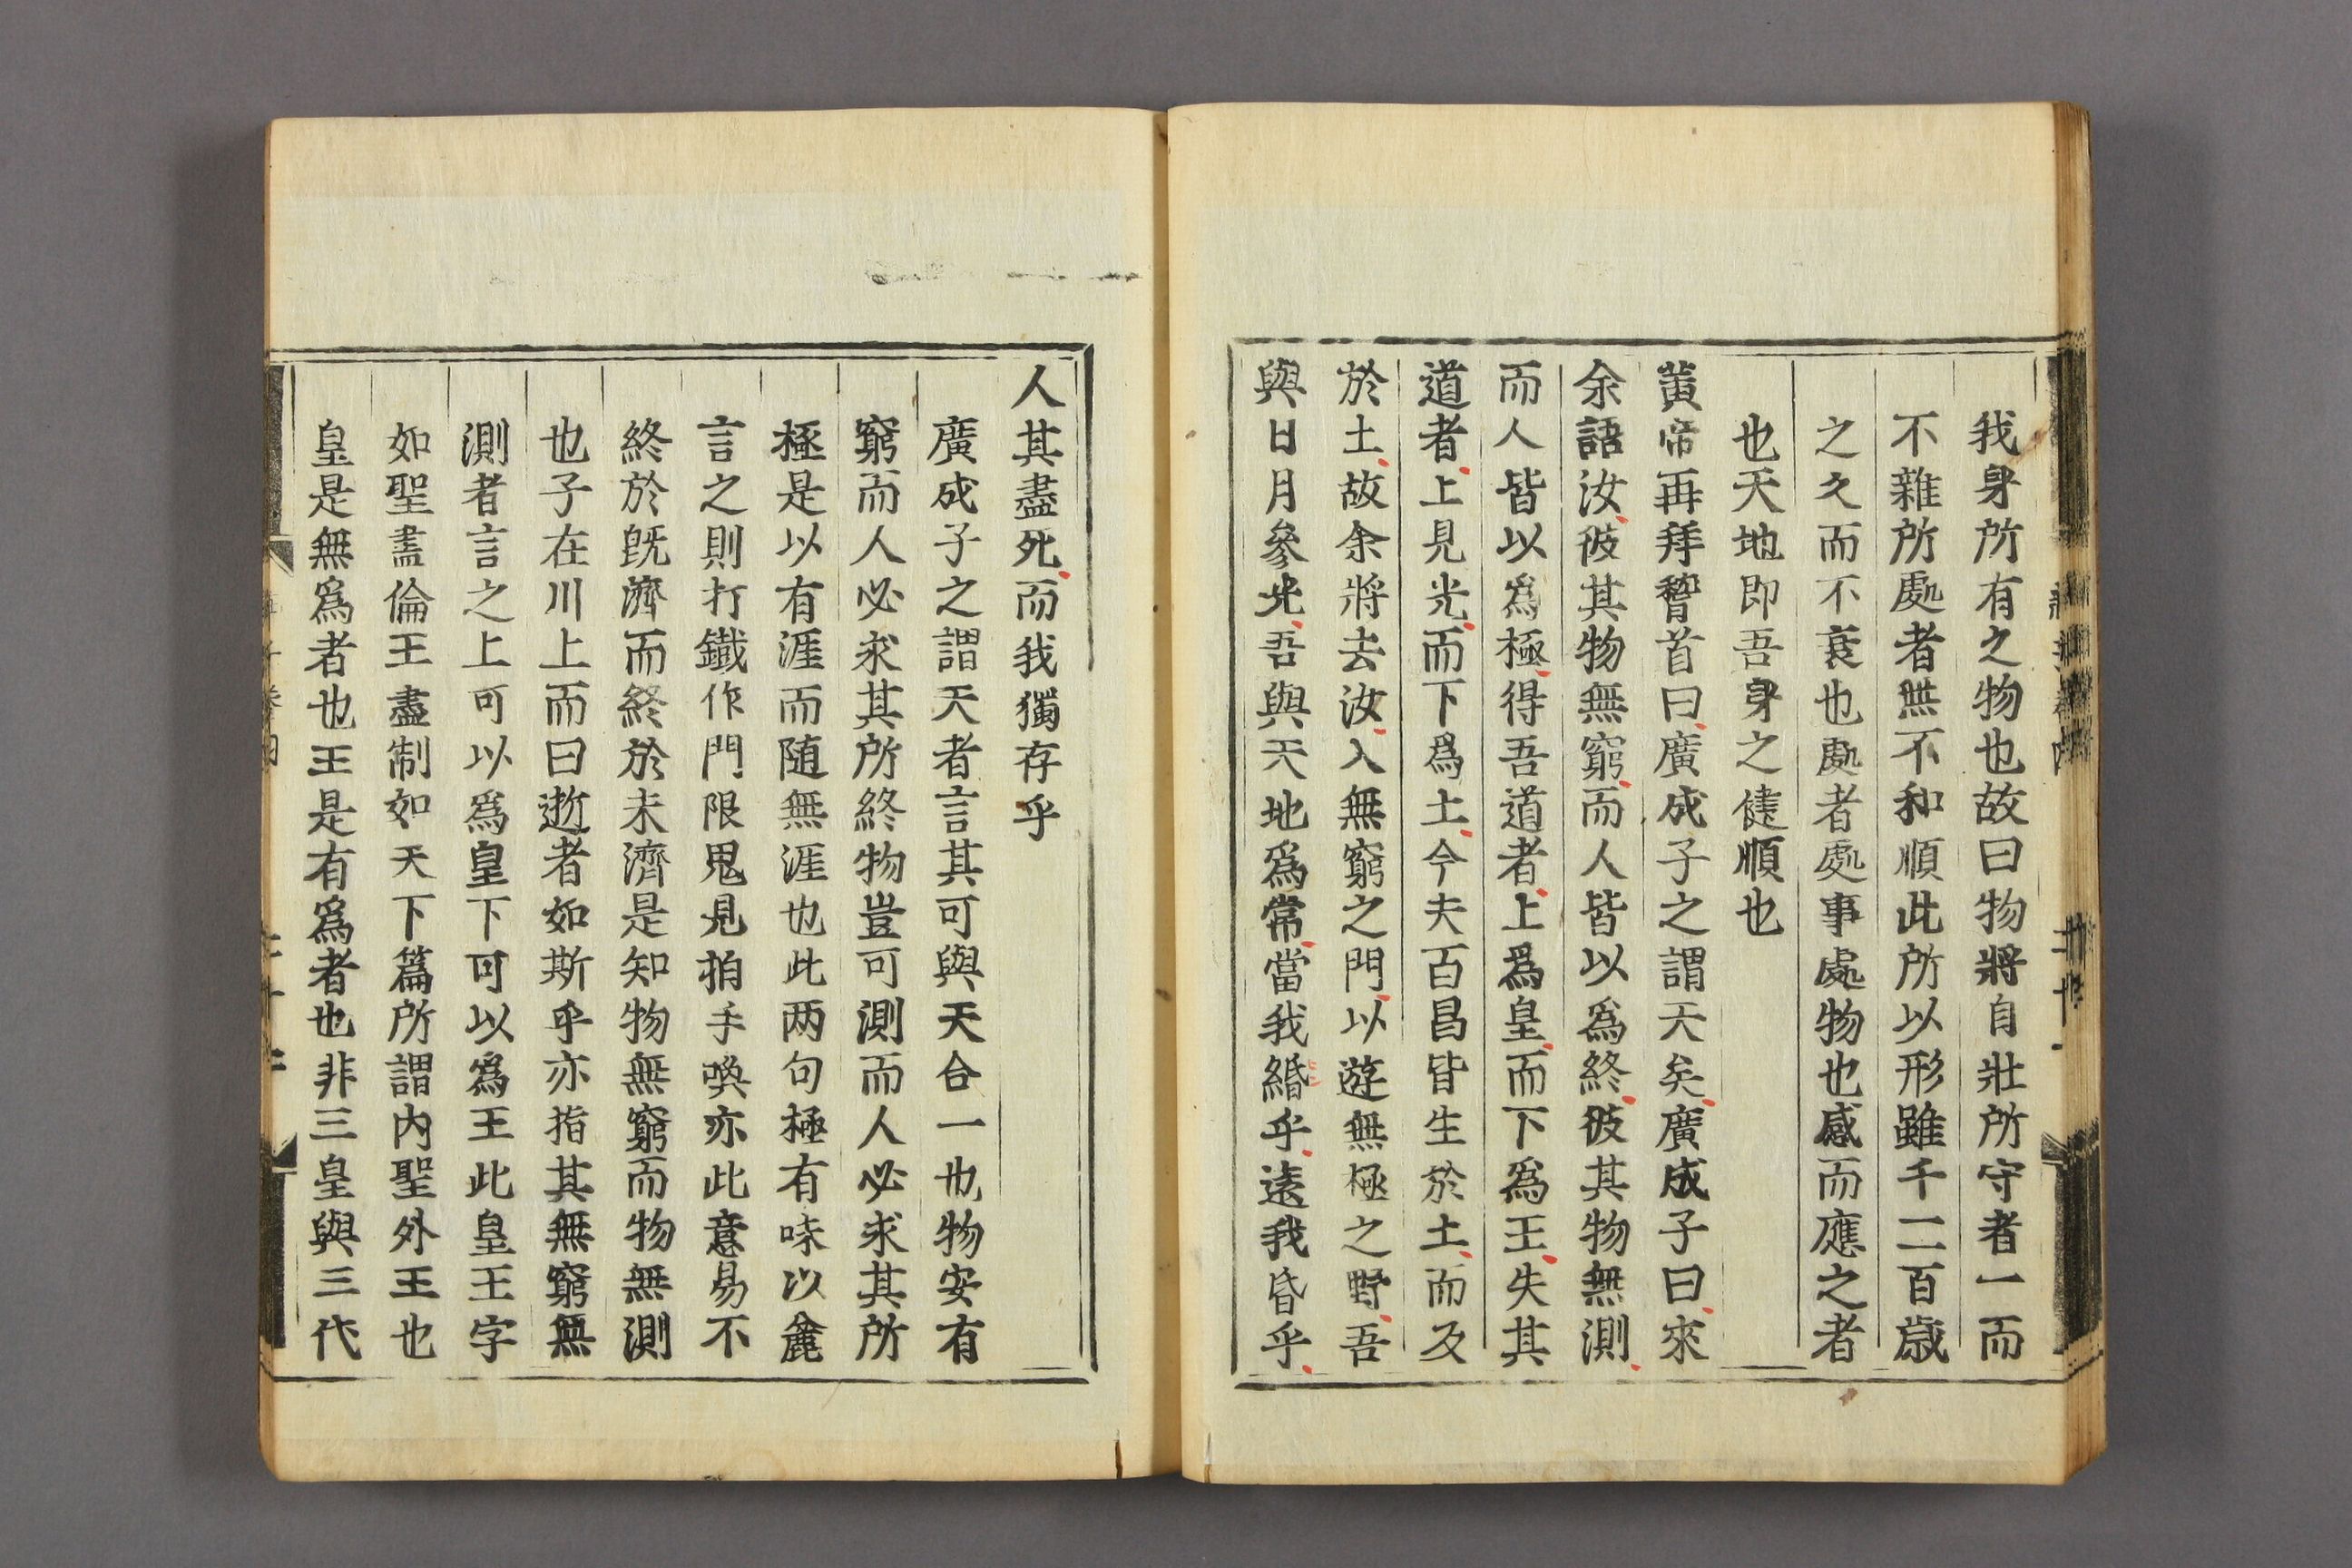 我身所有之物也故曰物將自壯所守者一而
不雜所處者無不和順此所以形雖千二百歳
之久而不衰也處者處事處物也感而應之者
也天地即吾身之健順也
黃帝再拜稽首曰廣成子之謂天矣廣成子曰來
余語汝彼其物無窮而人皆以爲終彼其物無測
而人皆以爲極得吾道者上爲皇而下爲王失其
道者上見光而下爲土今夫百昌皆生於土而反
於土故余將去汝入無窮之門以遊無極之野吾
與日月參光吾與天地爲常當我緡乎遠我昏乎
人其盡死而我獨存乎
廣成子之謂天者言其可與天合一也物安有
窮而人必求其所終物豈可測而人必求其所
極是以有涯而随無涯也此两句極有味以麄
言之則打鐵作門限鬼見拍手喚亦此意易不
終於旣濟而終於未濟是知物無窮而物無測
也子在川上而曰逝者如斯乎亦指其無窮無
測者言之上可以爲皇下可以爲王此皇王字
如聖盡倫王盡制如天下篇所謂内聖外王也
皇是無爲者也王是有爲者也非三皇與三代